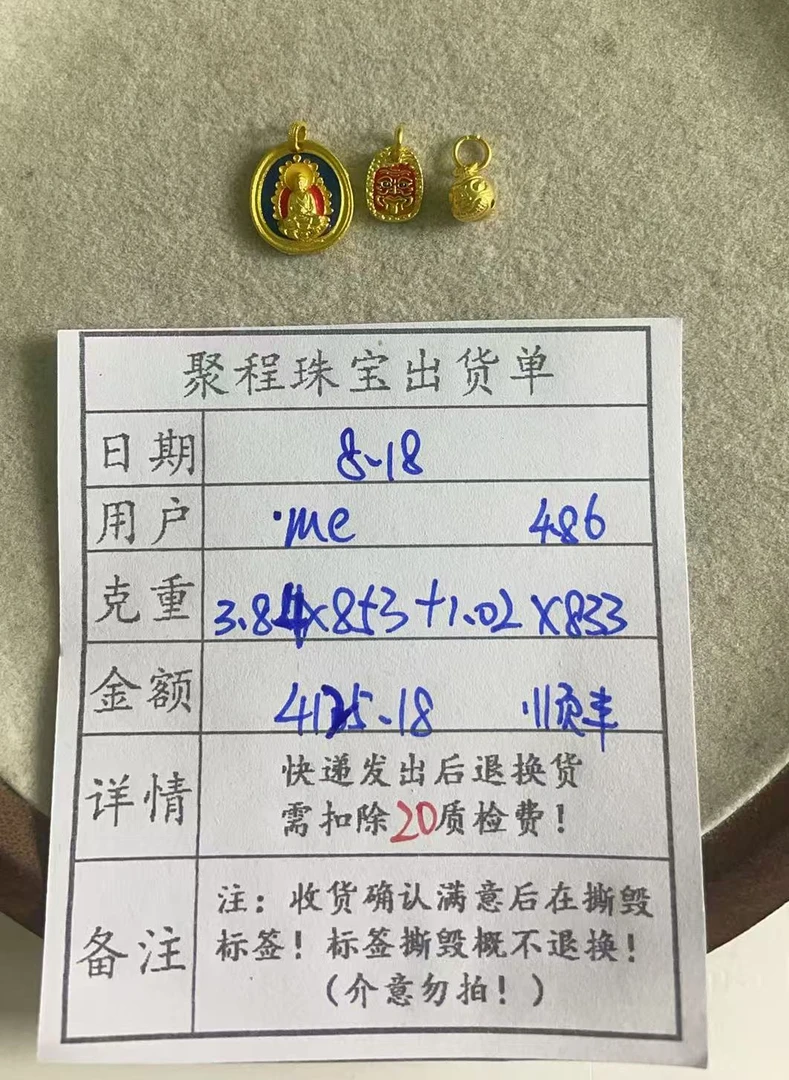 聚程珠宝出货单
日期 8-18
用户 ·me 486
克重 3.84×853+1.02×833
金额 4125.18 顺丰
详情 快递发出后退换货
需扣除20质检费！
备注 注：收货确认满意后在撕毁
标签！标签撕毁概不退换！
（介意勿拍！）